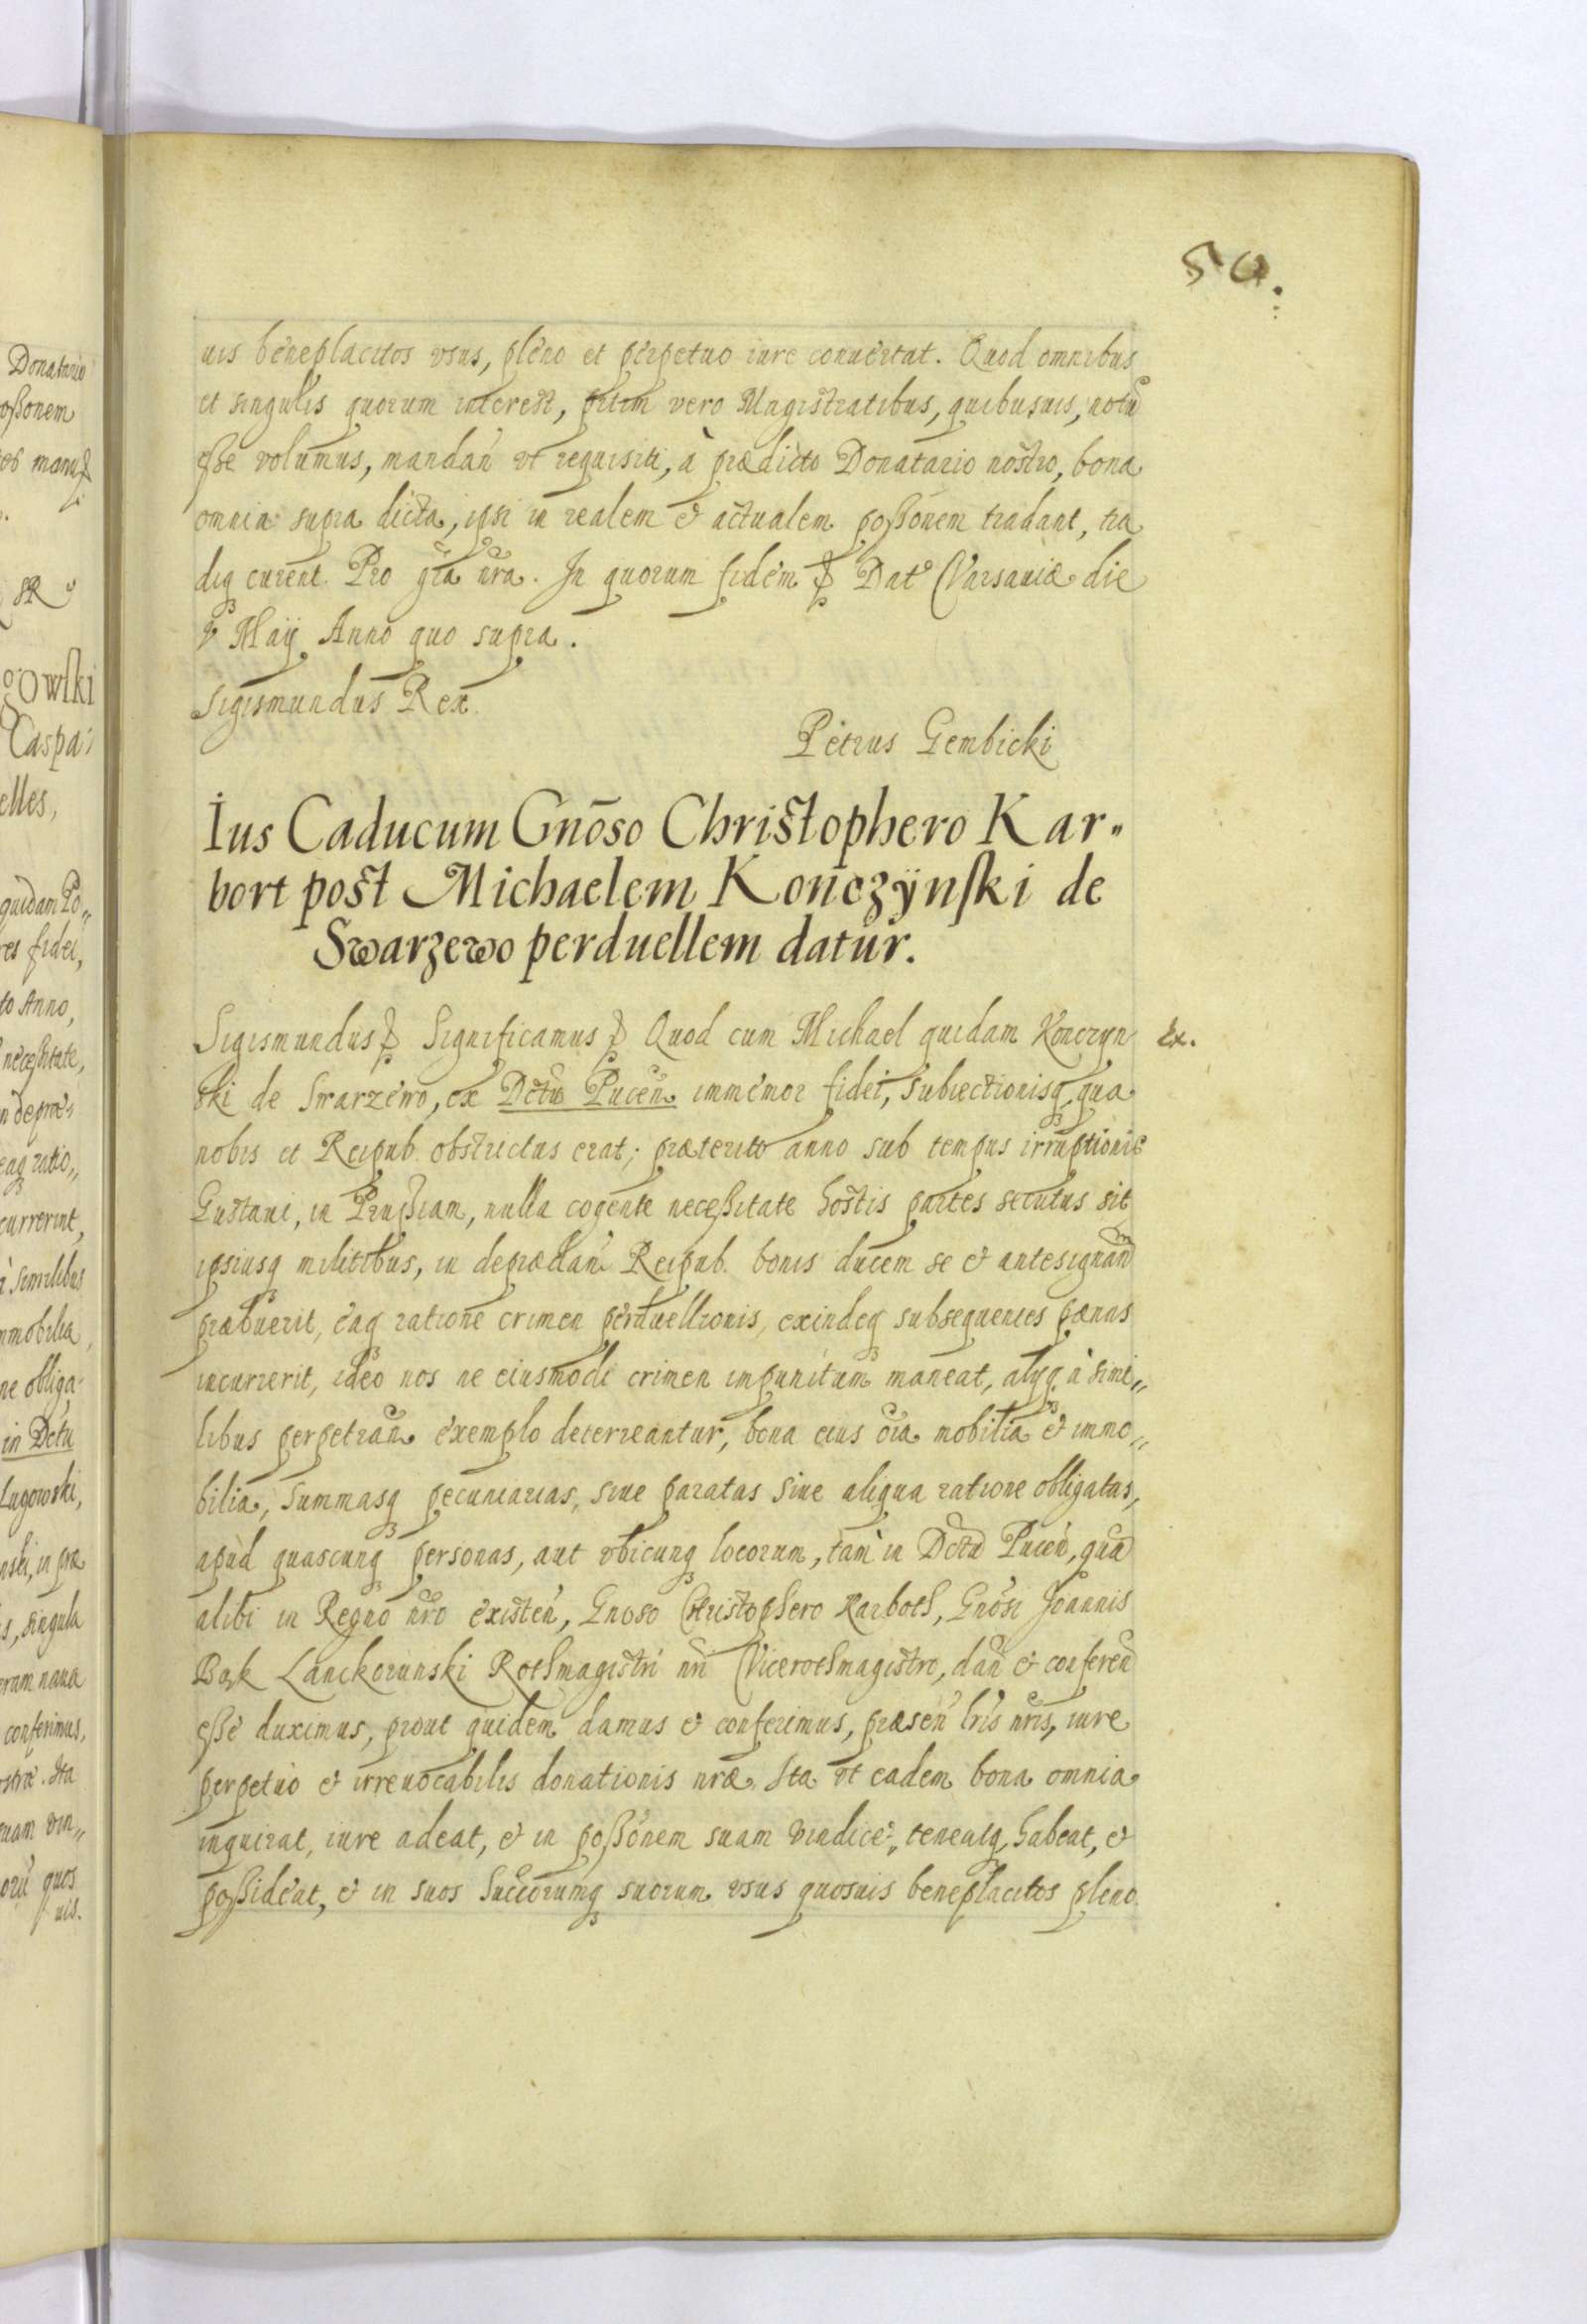 50.
uis beneplacitos vsus, pleno et perpetuo iure conuertat. Quod omnibus
et singulis quorum interest, prtim vero Magistratibus, quibusuis, notũ
esse volumus, mandañ vt requisiti, à prædicto Donatario nostro, bona
omnia supra dicta, ipsi in realem & actualem possonem tradant, tra
diq curent. Pro gra nra. In quorum fidem Dat Varsauiæ die
V Maij Anno quo supra.
Sigismundus Rex
Petrus Gembicki
Ius Caducum Gnõso Christophero Kar"
bort post Michaelem Kończÿnski de
Swarzewo perduellem datur.
Sigismundus Significamus Quod cum Michael quidam Konczyn
Ex.
ski de Swarzewo, ex Dctu Puceñ immemor fidei, subiectionisq, qua
nobis et Reipub. obstrictus erat; præterito anno sub tempus irruptionis
Gustaui, in Prussiam, nulla cogente necessitate hostis partes secutus sit
ipsiusq militibus, in deprædañ Reipub. bonis ducem se & antesignanũ
præbuerit, eaq ratione crimen perduellionis, exindeq subsequentes pænas
incurrerit, ideo nos ne eiusmodi crimen impunitum maneat, alijq à simi„
libus perpetrañ exemplo deterreantur, bona eius oia mobilia & immo„
bilia, summasq pecuniarias, siue paratas siue aliqua ratione obligatas,
apud quascunq personas, aut vbicunq locorum, tam in Dctu Puceñ, quã
alibi in Regno nro existeñ, Gnoso Christophero Karboth, Gnosi Joannis
Bąk Lanckorunski Rothmagistri nri Vicerothmagistro, dañ & confereñ
esse duximus, prout quidem damus & conferimus, præseñ lris nris, iure
perpetuo & irreuocabilis donationis nræ. Ita vt eadem bona omnia
inquirat, iure adeat, & in possonem suam vindicet, teneatq, habeat, &
possideat, & in suos Succorumq suorum vsus quosuis beneplacitos pleno
Donatario
ossonem
gowski
Caspa
elles,
quidam Po„
res fidei,
to Anno,
necessitate,
n depræ
eaq ratio„
currerint,
à similibus
mmobilia,
ne obliga
in Dctu
Lugowski,
nski, in præ
s, singula
conferimus,
ostræ. Ita
quam vin„
orũ quos
uis.